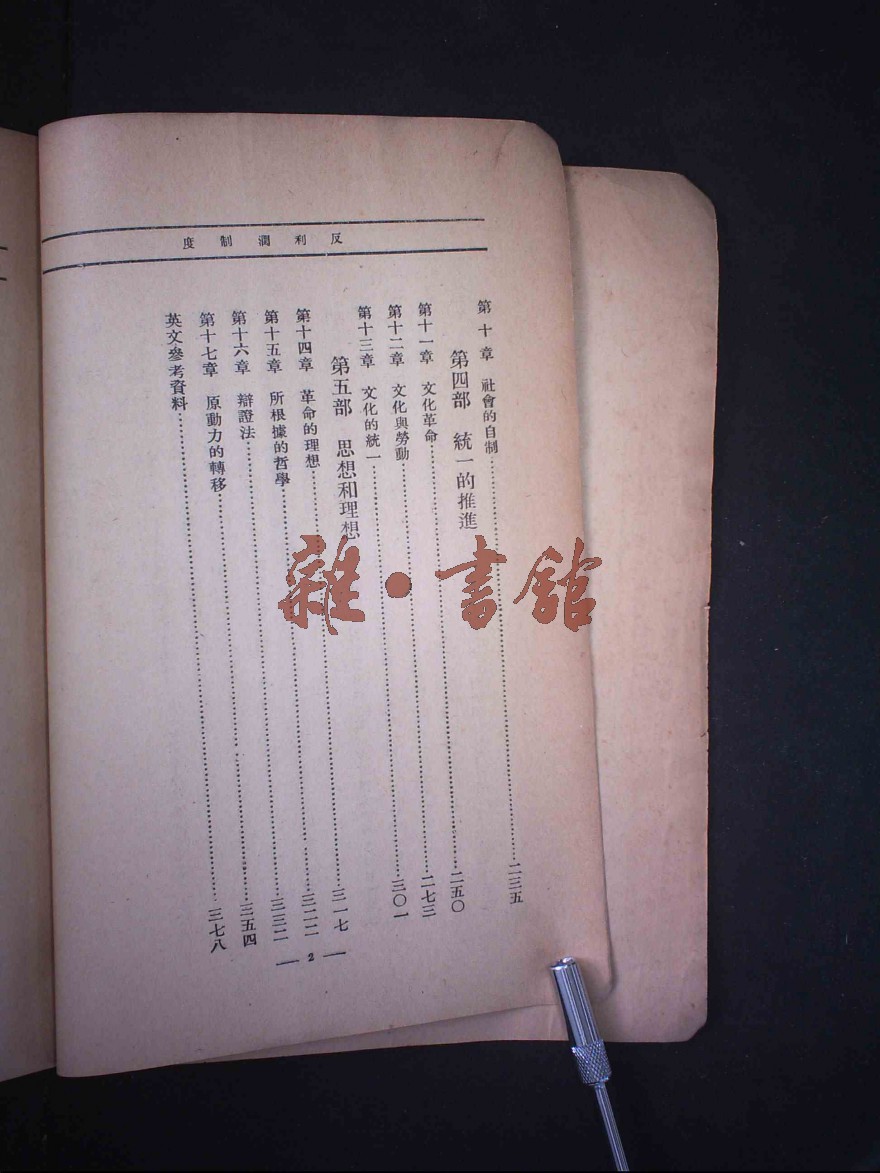 反利潤制度
第十章 社會的自制……二三五
第四部 統一的推進
第十一章 文化革命……二五〇
第十二章 文化與勞動……二七三
第十三章 文化的統一……三〇一
第五部 思想和理想
第十四章 革命的理想……三一七
第十五章 所根據的哲學……三二二
第十六章 辯證法……三三二
第十七章 原動力的轉移……三五四
英文參考資料……三七八
— 2 —
雜·書館